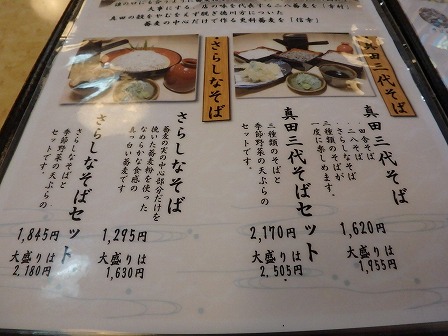 大事にする二店の味を代表する二八蕎麦を
真田の鼓をやむをえず脱ぎ徳川方についた
蕎麦の中心だけで作る更科蕎麦を「信幸」
真田三代そば
真田三代そば
・田舎そば
・二八そば
・さらしなそば
三種類のそばが
一度に楽しめます。
1,620円
大盛りは
1,955円
真田三代そばセット
三種類のそばと
季節野菜の天ぷらの
セットです。
2,170円
大盛りは
2,505円
さらしなそば
さらしなそば
蕎麦の実の中心部分だけを
挽いた蕎麦粉を使った
なめらかな食感の
真っ白い蕎麦です
1,295円
大盛りは
1,630円
さらしなそばセット
さらしなそばと
季節野菜の天ぷらの
セットです。
1,845円
大盛りは
2,180円